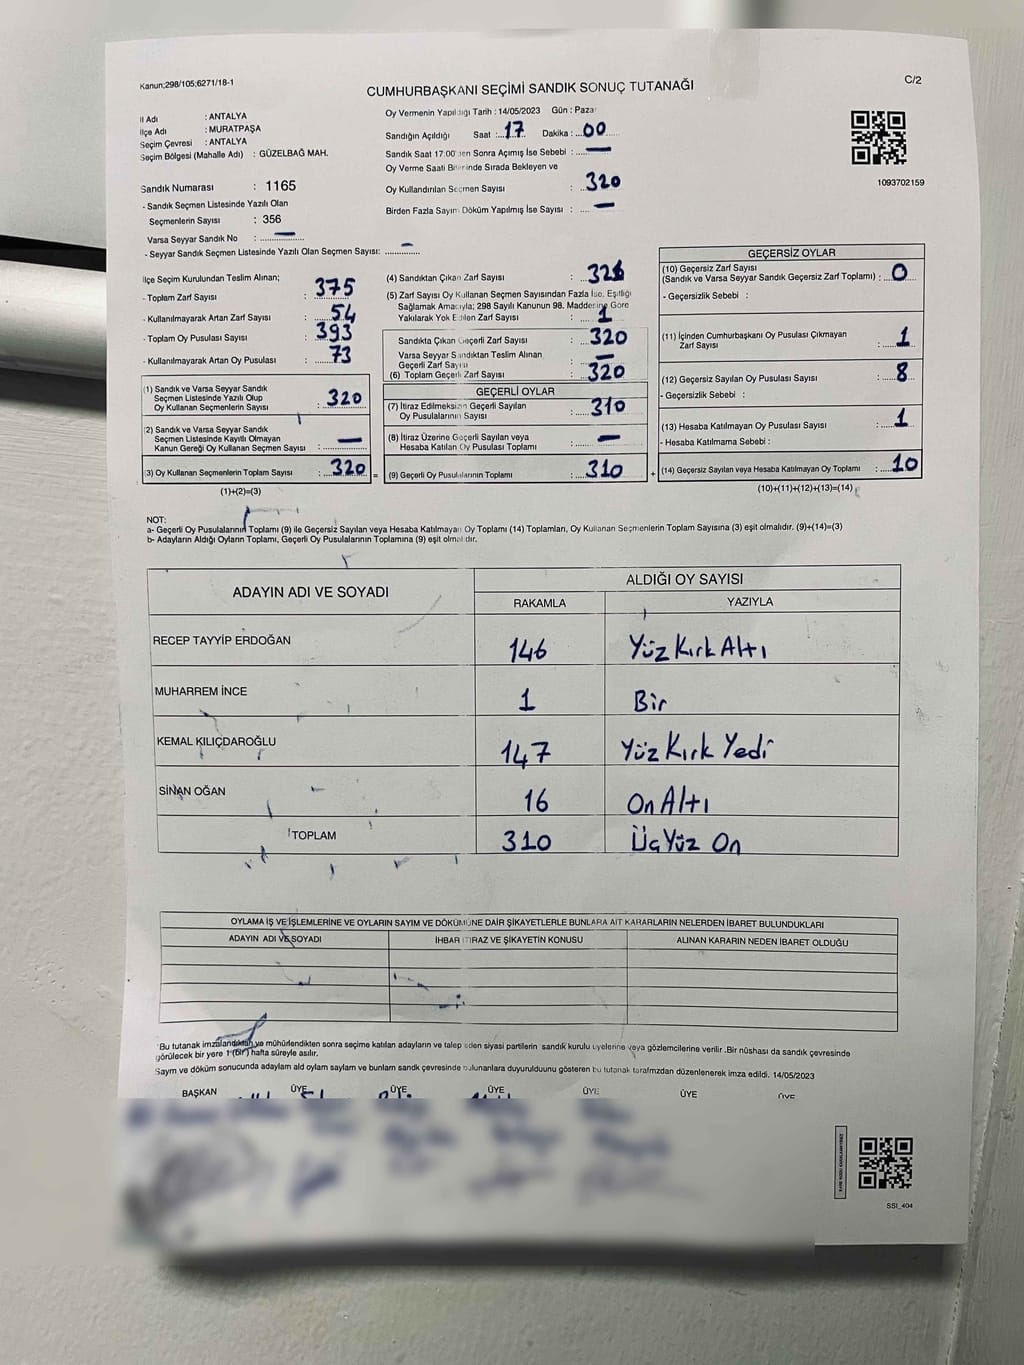 Kanun;298/105;6271/18-1
CUMHURBAŞKANI SEÇİMİ SANDIK SONUÇ TUTANAĞI
C/2
İl Adı : ANTALYA
İlçe Adı : MURATPAŞA
Seçim Çevresi : ANTALYA
Seçim Bölgesi (Mahalle Adı) : GÜZELBAĞ MAH.
Sandık Numarası : 1165
- Sandık Seçmen Listesinde Yazılı Olan
Seçmenlerin Sayısı : 356
Varsa Seyyar Sandık No : —
- Seyyar Sandık Seçmen Listesinde Yazılı Olan Seçmen Sayısı: —
Oy Vermenin Yapıldığı Tarih : 14/05/2023 Gün : Pazar
Sandığın Açıldığı Saat : 17 Dakika : 00
Sandık Saat 17:00'den Sonra Açımış İse Sebebi : —
Oy Verme Saati Bitiminde Sırada Bekleyen ve
Oy Kullandırılan Seçmen Sayısı : 320
Birden Fazla Sayım Döküm Yapılmış İse Sayısı : —
1093702159
İlçe Seçim Kurulundan Teslim Alınan;
- Toplam Zarf Sayısı : 375
- Kullanılmayarak Artan Zarf Sayısı : 54
- Toplam Oy Pusulası Sayısı : 393
- Kullanılmayarak Artan Oy Pusulası : 73
(1) Sandık ve Varsa Seyyar Sandık
Seçmen Listesinde Yazılı Olup
Oy Kullanan Seçmenlerin Sayısı : 320
(2) Sandık ve Varsa Seyyar Sandık
Seçmen Listesinde Kayıtlı Olmayan
Kanun Gereği Oy Kullanan Seçmen Sayısı : —
(3) Oy Kullanan Seçmenlerin Toplam Sayısı : 320 =
(1)+(2)=(3)
(4) Sandıktan Çıkan Zarf Sayısı : 321
(5) Zarf Sayısı Oy Kullanan Seçmen Sayısından Fazla İse, Eşitliği
Sağlamak Amacıyla; 298 Sayılı Kanunun 98. Maddesine Göre
Yakılarak Yok Edilen Zarf Sayısı : 1
Sandıkta Çıkan Geçerli Zarf Sayısı : 320
Varsa Seyyar Sandıktan Teslim Alınan
Geçerli Zarf Sayısı : —
(6) Toplam Geçerli Zarf Sayısı : 320
GEÇERLİ OYLAR
(7) İtiraz Edilmeksizin Geçerli Sayılan
Oy Pusulalarının Sayısı : 310
(8) İtiraz Üzerine Geçerli Sayılan veya
Hesaba Katılan Oy Pusulası Toplamı : —
(9) Geçerli Oy Pusulalarının Toplamı : 310 +
GEÇERSİZ OYLAR
(10) Geçersiz Zarf Sayısı
(Sandık ve Varsa Seyyar Sandık Geçersiz Zarf Toplamı) : 0
- Geçersizlik Sebebi :
(11) İçinden Cumhurbaşkanı Oy Pusulası Çıkmayan
Zarf Sayısı : 1
(12) Geçersiz Sayılan Oy Pusulası Sayısı : 8
- Geçersizlik Sebebi :
(13) Hesaba Katılmayan Oy Pusulası Sayısı : 1
- Hesaba Katılmama Sebebi :
(14) Geçersiz Sayılan veya Hesaba Katılmayan Oy Toplamı : 10
(10)+(11)+(12)+(13)=(14)
NOT:
a- Geçerli Oy Pusulalarının Toplamı (9) ile Geçersiz Sayılan veya Hesaba Katılmayan Oy Toplamı (14) Toplamları, Oy Kullanan Seçmenlerin Toplam Sayısına (3) eşit olmalıdır. (9)+(14)=(3)
b- Adayların Aldığı Oyların Toplamı, Geçerli Oy Pusulalarının Toplamına (9) eşit olmalıdır.
ADAYIN ADI VE SOYADI
ALDIĞI OY SAYISI
RAKAMLA YAZIYLA
RECEP TAYYİP ERDOĞAN 146 Yüz Kırk Altı
MUHARREM İNCE 1 Bir
KEMAL KILIÇDAROĞLU 147 Yüz Kırk Yedi
SİNAN OĞAN 16 On Altı
TOPLAM 310 Üç Yüz On
OYLAMA İŞ VE İŞLEMLERİNE VE OYLARIN SAYIM VE DÖKÜMÜNE DAİR ŞİKAYETLERLE BUNLARA AİT KARARLARIN NELERDEN İBARET BULUNDUKLARI
ADAYIN ADI VE SOYADI İHBAR İTİRAZ VE ŞİKAYETİN KONUSU ALINAN KARARIN NEDEN İBARET OLDUĞU
Bu tutanak imzalandıktan ve mühürlendikten sonra seçime katılan adayların ve talep eden siyasi partilerin sandık kurulu üyelerine veya gözlemcilerine verilir .Bir nüshası da sandık çevresinde
görülecek bir yere 1 (bir) hafta süreyle asılır.
Sayım ve döküm sonucunda adaylam ald oylam saylam ve bunlam sandk çevresinde bulunanlara duyurulduunu gösteren bu tutanak tarafmzdan düzenlenerek imza edildi. 14/05/2023
BAŞKAN ÜYE ÜYE ÜYE ÜYE ÜYE ÜYE
SSI_404